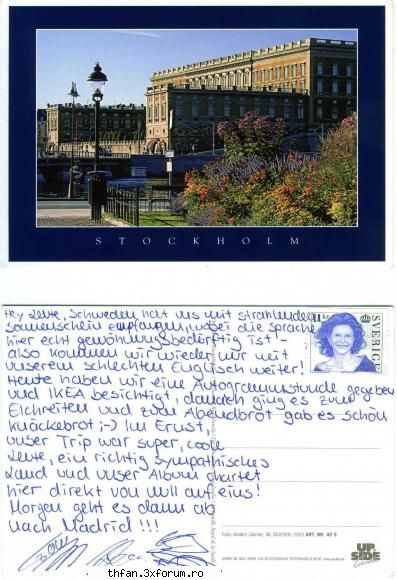 STOCKHOLM
Hey Leute, Schweden hat uns mit strahlendem
Sonnenschein empfangen, wobei die Sprache
hier echt gewöhnungsbedürftig ist! -
also kommen wir wieder nur mit
unserem schlechten Englisch weiter!
Heute haben wir eine Autogrammstunde gegeben
und IKEA besichtigt, danach ging es zum
Elchreiten und zum Abendbrot gab es schön
Knäckebrot ;-) Im Ernst,
unser Trip war super, coole
Leute, ein richtig sympathisches
Land und unser Album chartet
hier direkt von null auf eins!
Morgen geht es dann ab
nach Madrid !!!
11 kr
SVERIGE
Foto: Anders
ART. NR. 40 S
UP
SIDE
thfan.3xforum.ro